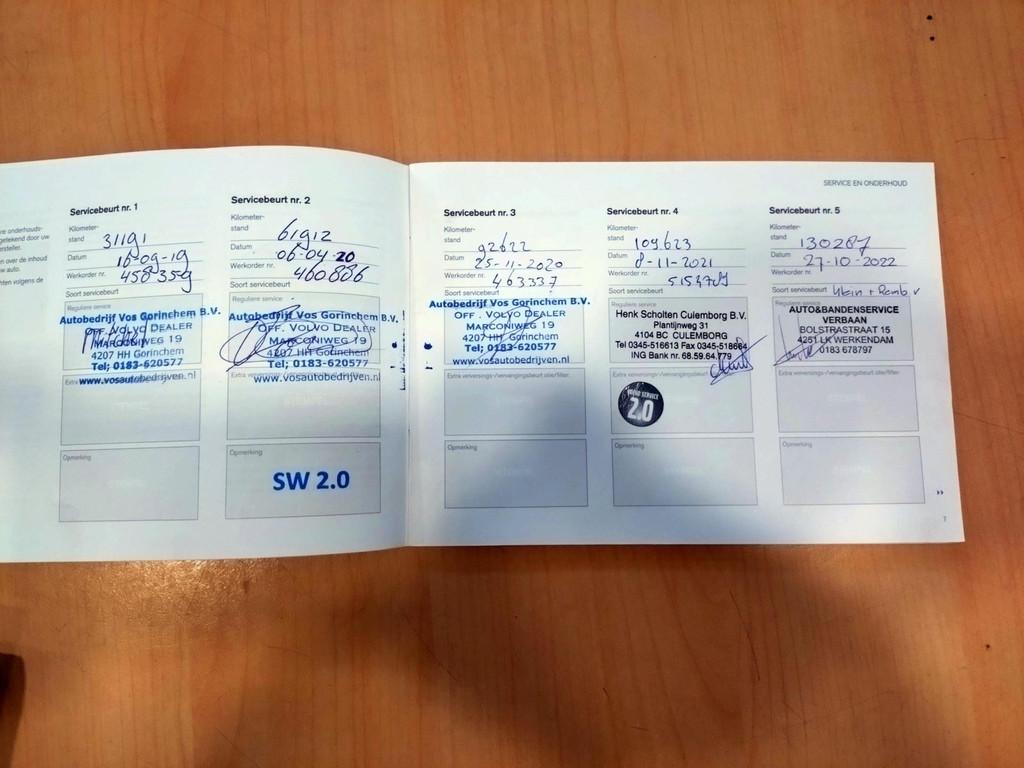 SERVICE EN ONDERHOUD
Servicebeurt nr. 1
Kilometer-
stand 31191
Datum 16-09-19
Werkorder nr. 458359
Soort servicebeurt
Reguliere service
Autobedrijf Vos Gorinchem B.V.
OFF. VOLVO DEALER
MARCONIWEG 19
4207 HH Gorinchem
Tel; 0183-620577
www.vosautobedrijven.nl
Opmerking
Servicebeurt nr. 2
Kilometer-
stand 61912
Datum 06-04-20
Werkorder nr. 460886
Soort servicebeurt
Reguliere service
Autobedrijf Vos Gorinchem B.V.
OFF. VOLVO DEALER
MARCONIWEG 19
4207 HH Gorinchem
Tel; 0183-620577
www.vosautobedrijven.nl
Opmerking
SW 2.0
Servicebeurt nr. 3
Kilometer-
stand 92622
Datum 25-11-2020
Werkorder nr. 463337
Soort servicebeurt
Autobedrijf Vos Gorinchem B.V.
OFF. VOLVO DEALER
MARCONIWEG 19
4207 HH Gorinchem
Tel; 0183-620577
www.vosautobedrijven.nl
Opmerking
Servicebeurt nr. 4
Kilometer-
stand 109623
Datum 8-11-2021
Werkorder nr.
Soort servicebeurt
Reguliere service
Henk Scholten Culemborg B.V.
Plantijnweg 31
4104 BC CULEMBORG
Tel 0345-516613 Fax 0345-518664
ING Bank nr. 68.59.64.779
Extra verversings-/vervangingsbeurt olie/filter
SERVICE
2.0
Opmerking
Servicebeurt nr. 5
Kilometer-
stand 130287
Datum 27-10-2022
Werkorder nr.
Soort servicebeurt Klein +
Reguliere service
AUTO&BANDENSERVICE
VERBAAN
BOLSTRASTRAAT 15
4251 LK WERKENDAM
0183 678797
Extra verversings-/vervangingsbeurt olie/filter
Opmerking
7